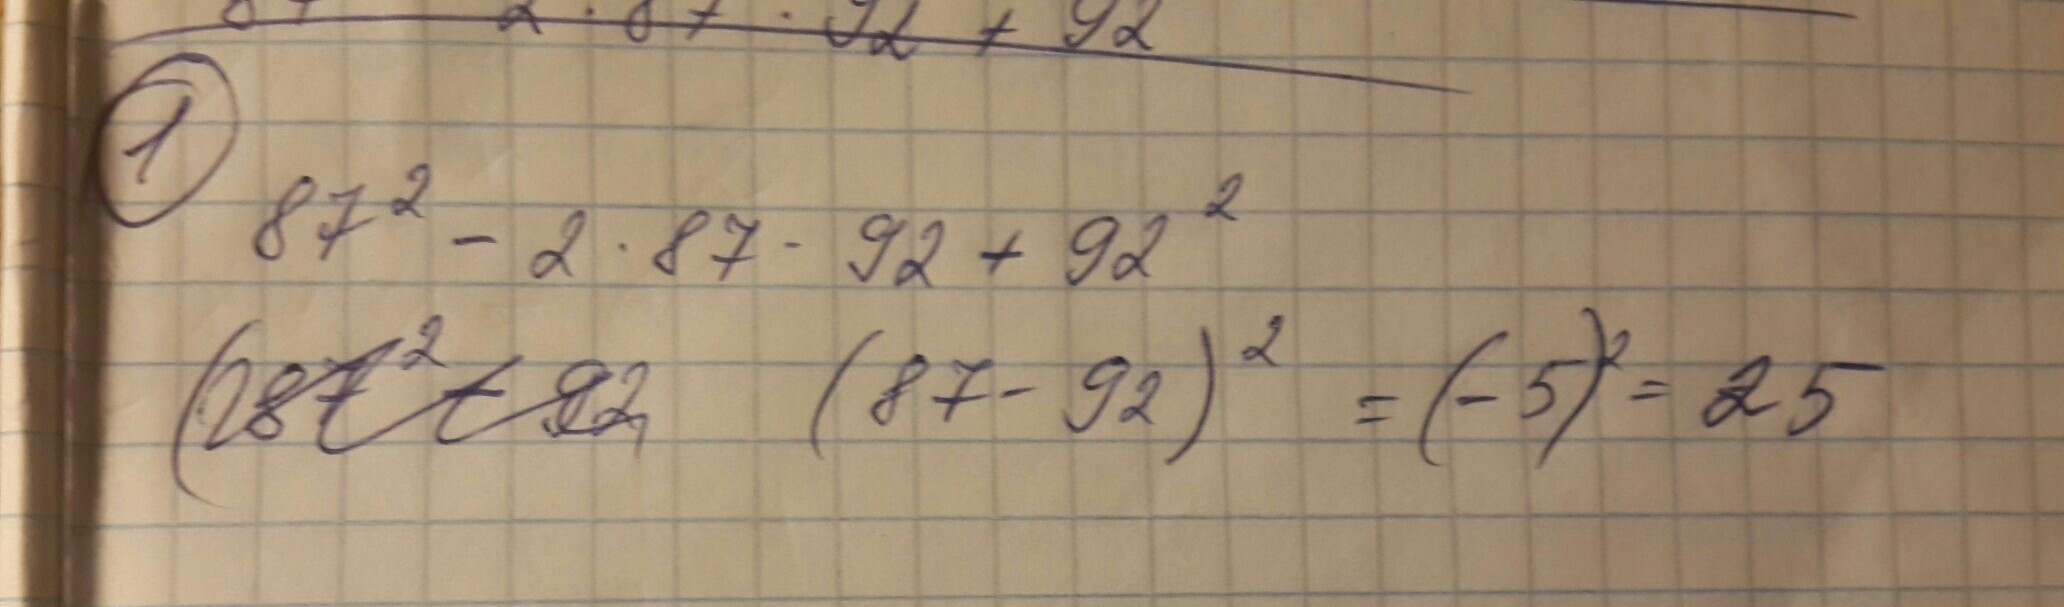 87 2 · 87 · 92 + 92
1
87² - 2 · 87 · 92 + 92²
(87² + 92 (87 - 92)² = (-5)² = 25